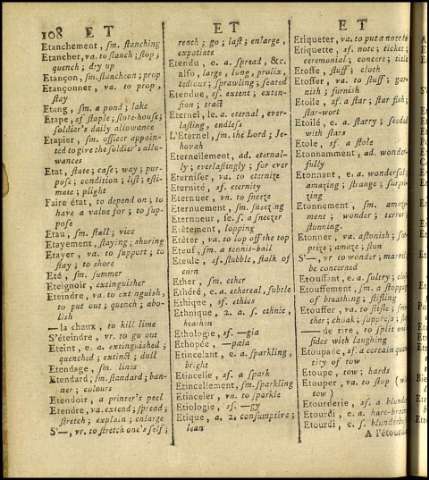 108 E T
Etanchement, ſm. ſtanching
Etancher, va. to ſtanch; ſtop,
quench; dry up
Etançon, ſm. ſtancheon; prop
Etançonner, va. to prop,
ſtay
Etang, ſm. a pond; lake
Etape, ſf. ſtaple; ſtore-houſe;
ſoldier's daily allowance
Etapier, ſm. officer appoint-
ed to give the ſoldier's allo-
wances
Etat, ſtate; caſe; way; pur-
poſe; condition; liſt; eſti-
mate; plight
Faire état, to depend on; to
have a value for; to ſup-
poſe
Etau, ſm. ſtall; vice
Etayement, ſtaying; ſhoring
Etayer, va. to ſupport; to
ſtay; to ſhore
Eté, ſm. ſummer
Eteignoir, extinguiſher
Eteindre, va. to extinguiſh,
to put out; quench; abo-
liſh
—la chaux, to kill lime
S'éteindre, vr. to go out
Eteint, e a. extinguiſhed;
quenched; extinct; dull
Etendage, ſm. lines
Etendard, ſm. ſtandard; ban-
ner; colours
Etendoir, a printer's peel
Etendre, va. extend; ſpread;
ſtretch; explain; enlarge
S'—, vr. to ſtretch one's ſelf;
E T
reach; go; laſt; enlarge,
expatiate
Etendu, e a. ſpread, &c.
alſo, large, long, prolix,
tedious; ſprawling; ſeared
Etendue, ſf. extent; exten-
ſion; tract
Eternel, le, a. eternal, ever-
laſting, endleſs
L'Eternel, ſm. the Lord; Je-
hovah
Eternellement, ad. eternal-
ly; everlaſtingly; for ever
Eterniſer, va. to eternize
Eternité, ſf. eternity
Eternuer, vn. to ſneeze
Eternuement, ſm. ſneezing
Eternueur, ſe. ſ. a ſneezer
Etêtement, lopping
Etêter, va. to lop off the top
Eteuf, ſm. a tennis-ball
Eteule, ſf. ſtubble, ſtalk of
corn
Ether, ſm. ether
Ethéré, e a. ethereal, ſubtle
Ethique, ſf. ethics
Ethnique, 2 a. ſ. ethnic,
heathen
Ethologie, ſf. —gia
Ethopée, —paia
Etincelant, e a. ſparkling,
bright
Etincelle, ſf. a ſpark
Etincellement, ſm. ſparkling
Etinceler, va. to ſparkle
Etiologie, ſf. —gy
Etique, a. 2. conſumptive;
lean
E T
Etiqueter, va. to put a note to
Etiquette, ſf. note; ticket;
ceremonial; concert; title
Etoffe, ſtuff; cloth
Etoffer, va. to ſtuff; gar-
niſh; furniſh
Etoile, ſf. a ſtar; ſtar fiſh;
ſtar-wort
Etoilé, e a. ſtarry; ſeeded
with ſtars
Etole, ſf. a ſtole
Etonnamment, ad. wonder-
fully
Etonnant, e a. wonderful;
amazing; ſtrange;
Etonnement, ſm. amaze-
ment; wonder;
ſtunning.
Etonner, va. aſtoniſh; ſur-
prize; amaze; ſtun
S'—, vr. to wonder;
be concerned
Etouffant, e a. ſultry;
Etouffement, ſm. a ſtopping
of breathing; ſtifling
Etouffer, va. to ſtifle;
ther; choak; ſuppreſs;
—— de rire, to ſplit one's
ſides with laughing
Etoupage, ſf. a certain quan-
tity of tow
Etoupe, tow; hards
Etouper, va. to ſtop (with
tow)
Etourderie, ſf. a blunder
Etourdi, e a. hare-brain
Etourdi, e ſ. blunderer
A l'étour